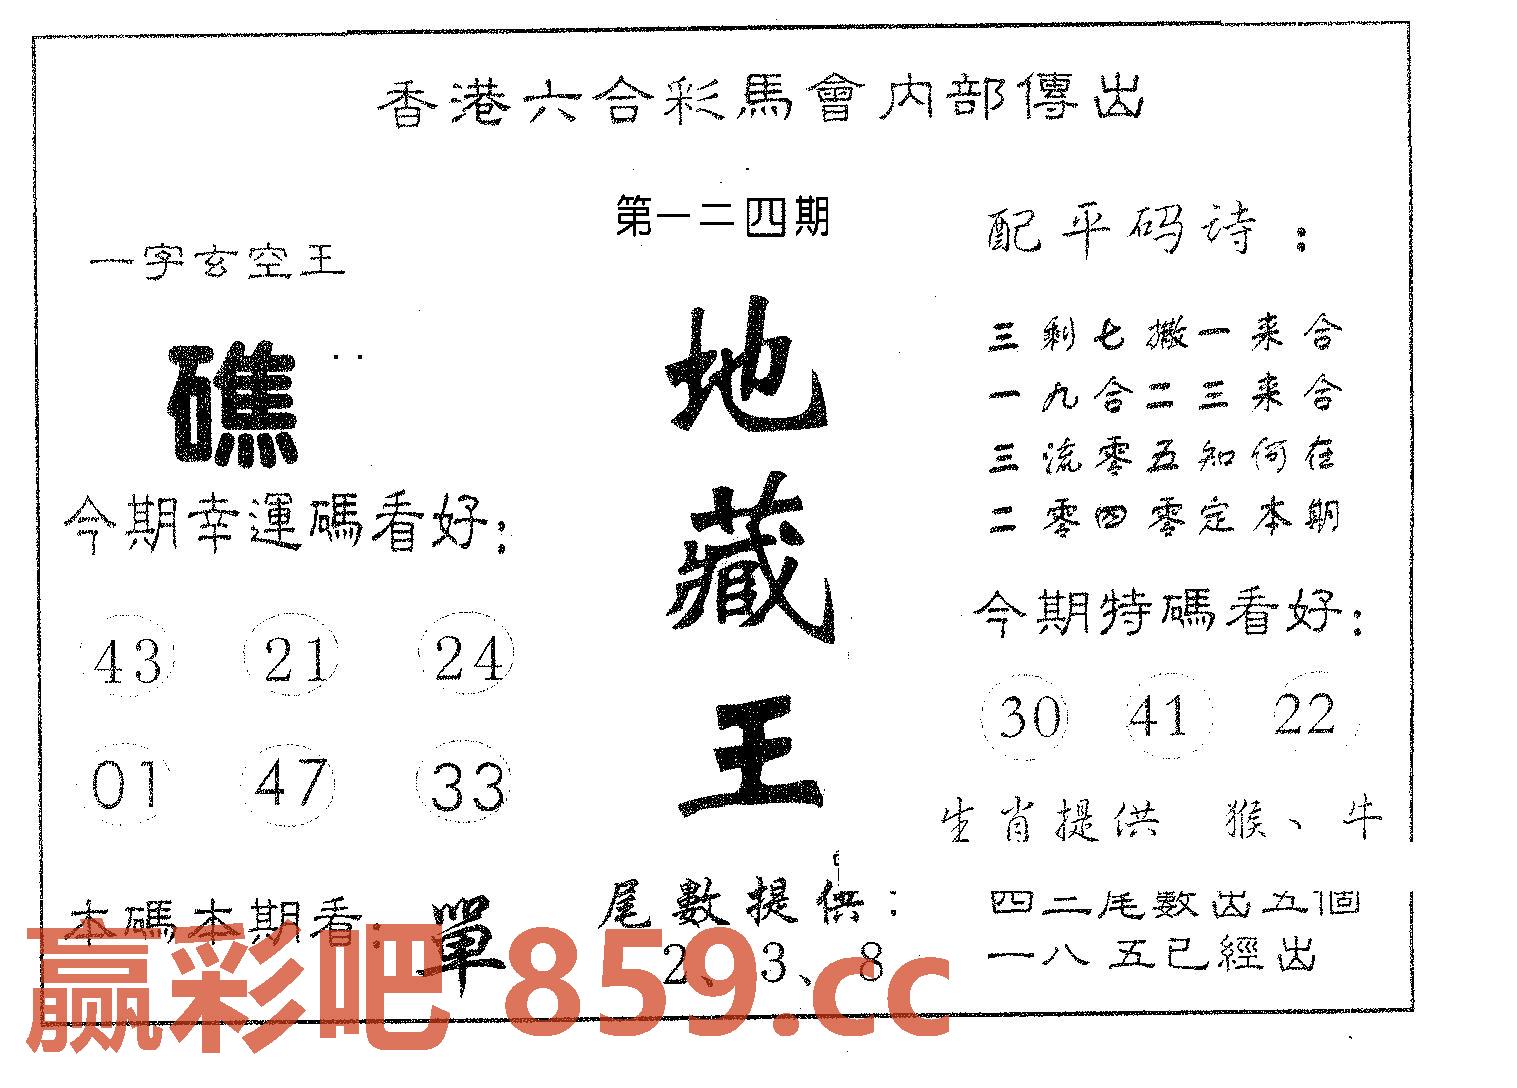 香港六合彩馬會內部傳出
第一二四期
一字玄空王
礁
今期幸運碼看好：
43 21 24
01 47 33
本碼本期看：單
地藏王
尾數提供：
2、3、8
配平码诗：
三剩七撒一来合
一九合二三来合
三流零五知何在
二零四零定本期
今期特碼看好：
30 41 22
生肖提供 猴、牛
四二尾數出五個
一八五已經出
赢彩吧 859.cc